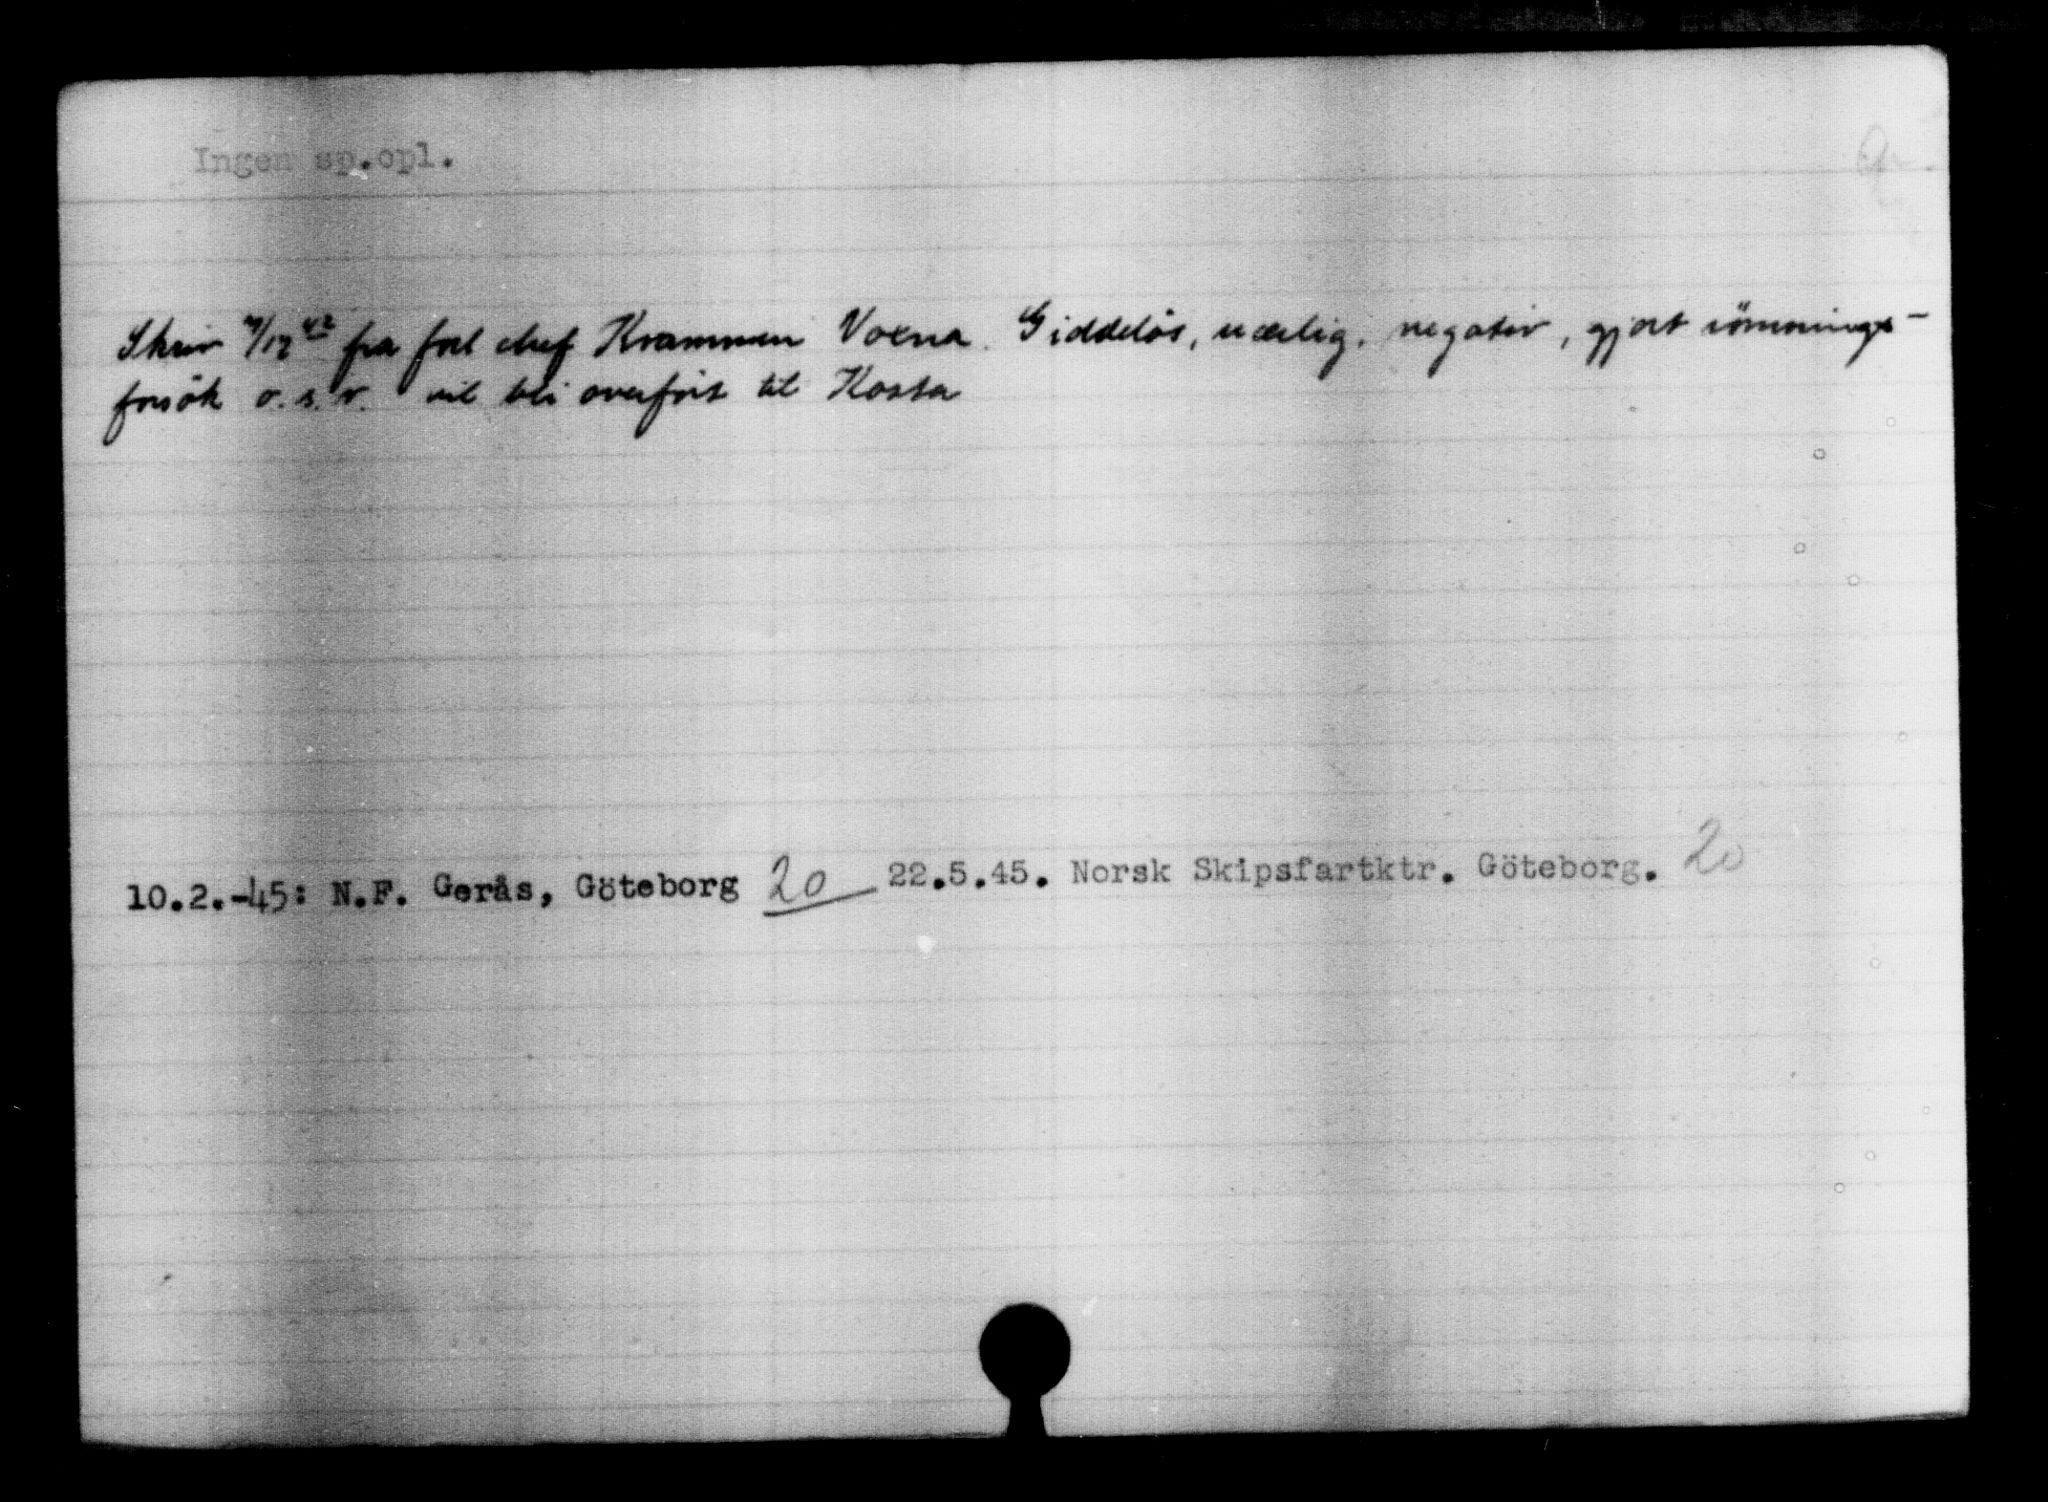 Ingen sp.opl.
Skriv 7/12 42 fra forl chef Krammen Voxna. Giddelös, uærlig, negativ, gjort römnings-
forsök o.s.v. vil bli overfört til Kosta
10.2.-45: N.F. Gerås, Göteborg 20 22.5.45. Norsk Skipsfartktr. Göteborg. 20